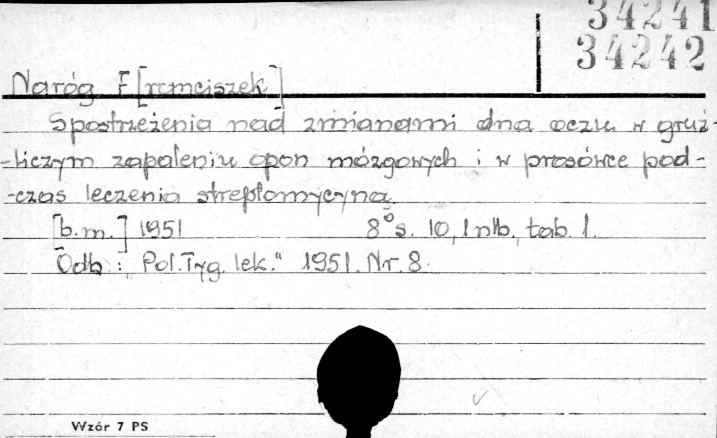 34241
34242
Naróg F[ranciszek]
Spostrzeżenia nad zmianami dna oczu w gruź-
-liczym zapaleniu opon mózgowych i w prosówce pod-
-czas leczenia streptomycyną.
[b.m.] 1951 8° s. 10, 1 nlb., tab. 1.
Odb.: "Pol. Tyg. lek." 1951. Nr. 8.
Wzór 7 PS